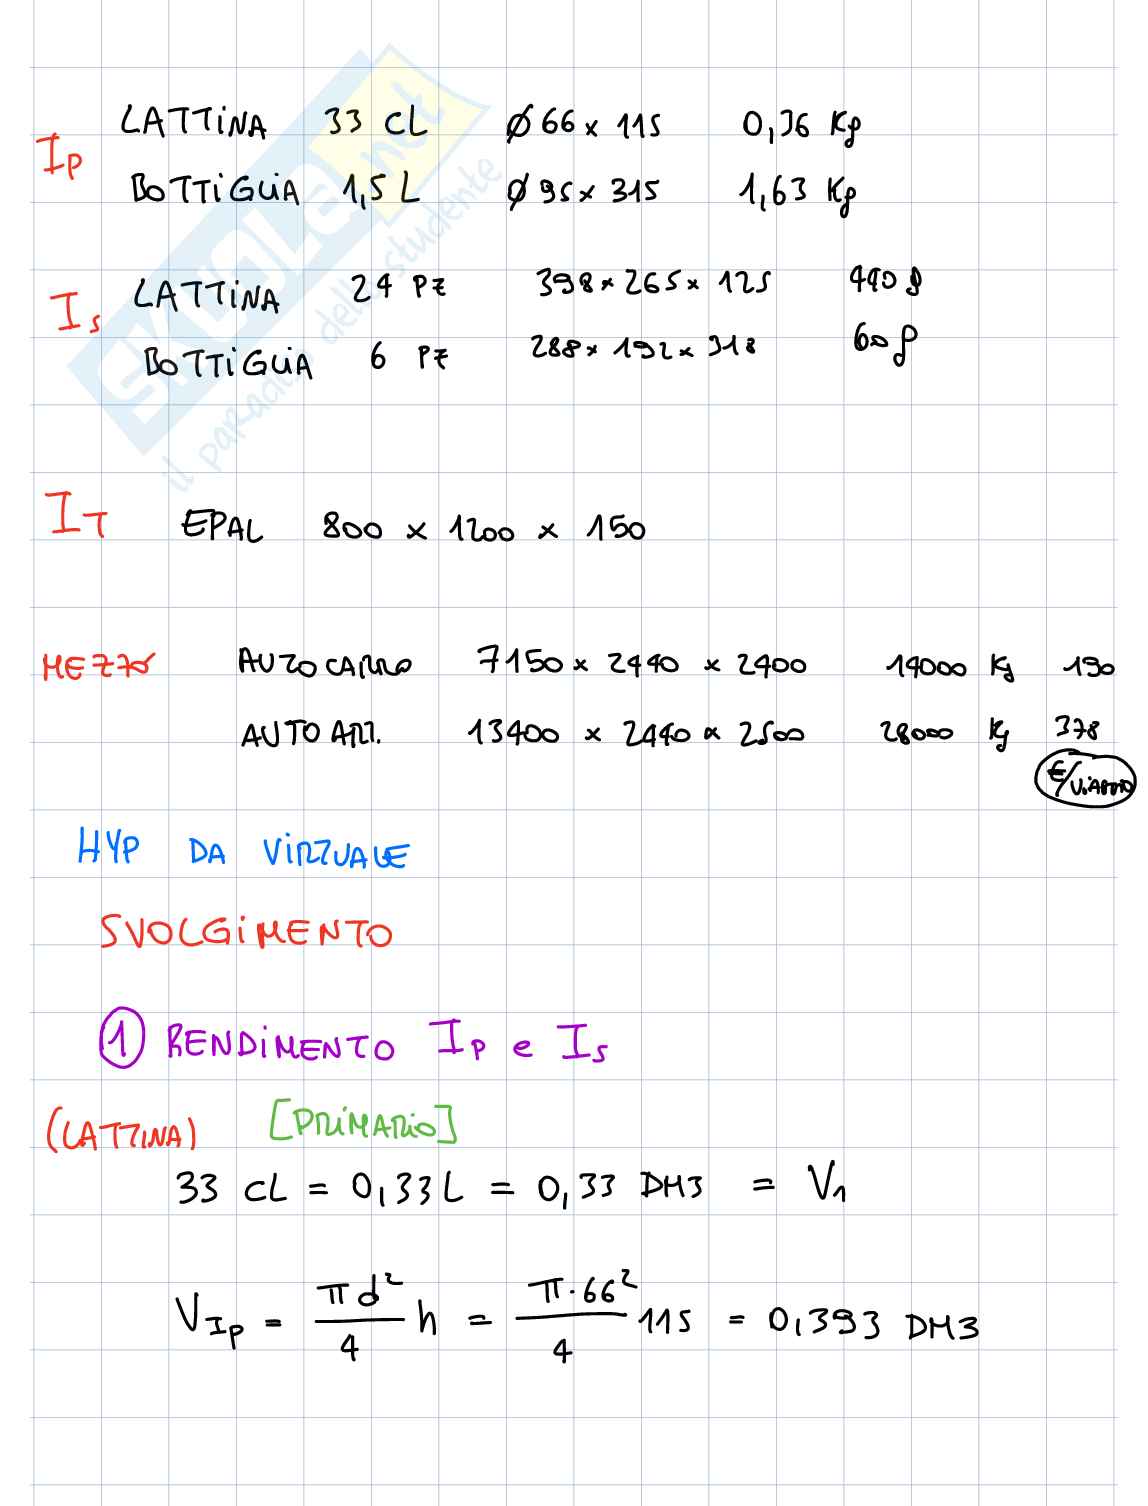 LATTINA 33 CL Ø 66 x 115 0,36 Kg
Ip
BOTTIGLIA 1,5 L Ø 95 x 315 1,63 Kg
LATTINA 24 PZ 398 x 265 x 125 440 g
Is
BOTTIGLIA 6 PZ 288 x 192 x 318 60 g
IT EPAL 800 x 1200 x 150
MEZZO AUTOCARRO 7150 x 2440 x 2400 14000 Kg 190
AUTO ART. 13400 x 2440 x 2500 28000 Kg 378
€/VIAGGIO
HYP DA VIRTUALE
SVOLGIMENTO
1 RENDIMENTO Ip e Is
(LATTINA) [PRIMARIO]
33 CL = 0,33 L = 0,33 DM3 = V1
VIp = πd²/4 h = π·66²/4 115 = 0,393 DM3
SKUOLA.net
il paradiso dello studente